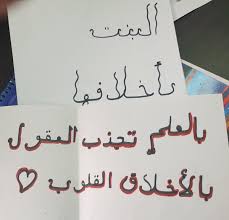 البنت
بأخلاقها
بالعلم تجذب العقول
بالأخلاق القلوب